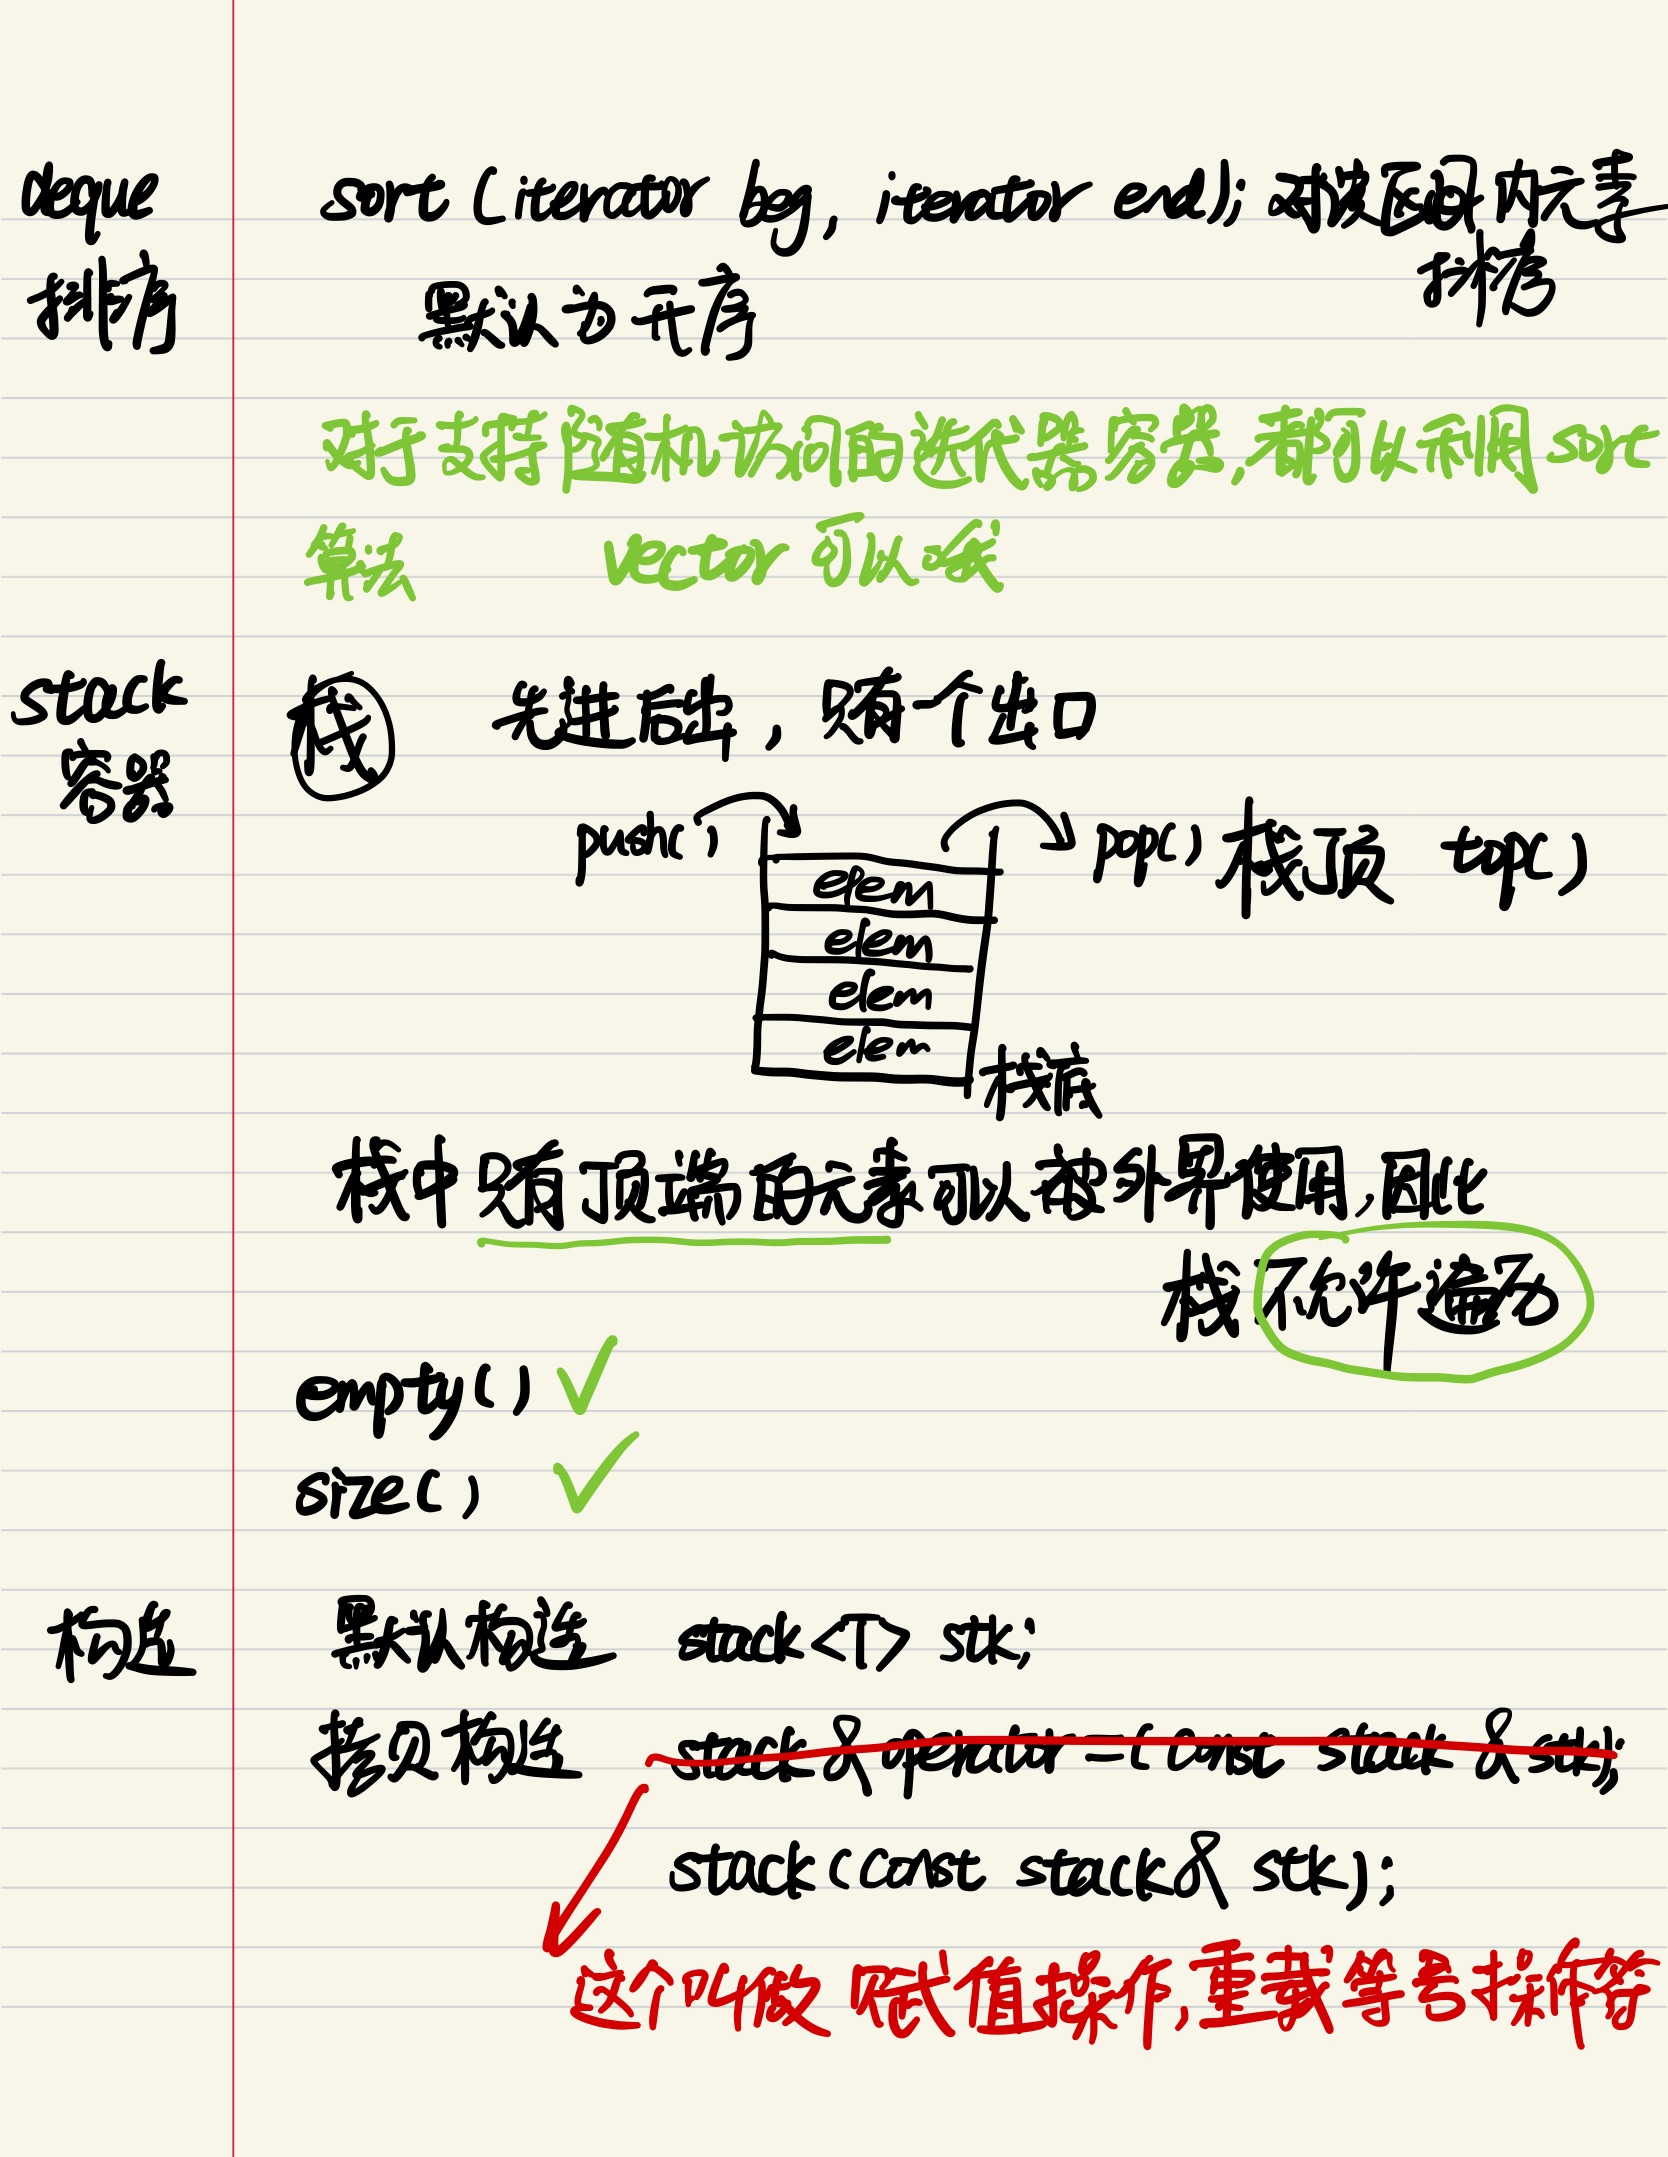 deque 排序
sort (iterator beg, iterator end); 对该区间内元素
排序
默认为升序
对于支持随机访问的迭代器容器,都可以利用 sort
算法 vector 可以哦
stack 容器
栈 先进后出, 只有一个出口
push() pop() 栈顶 top()
elem
elem
elem
elem
栈底
栈中只有顶端的元素可以被外界使用,因此
栈不允许遍历
empty() ✓
size() ✓
构造 默认构造 stack<T> stk;
拷贝构造 stack & operator=(const stack & stk);
stack(const stack& stk);
这个叫做赋值操作,重载等号操作符